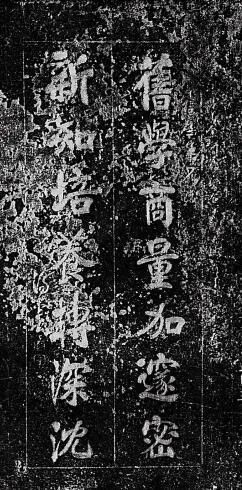 舊學商量加邃密
新知培養轉深沈